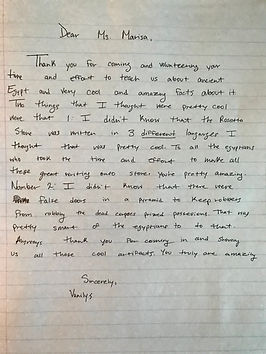 Dear Ms. Marisa,
Thank you for coming and volunteering your
time and effort to teach us about ancient
Egypt and very cool and amazing facts about it
Two things that I thought were pretty cool
were that 1: I didn't know that the Rosetta
Stone was written in 3 different languages I
thought that was pretty cool. To all the egyptians
who took the time and effort to make all
these great writing onto stone. You're pretty amazing.
Number 2: I didn't know that there were
false doors in a pyramid to keep robbers
from robbing the dead corpses prized possesions. That was
pretty smart of the egyptians to do that.
Anyways thank you for coming in and showing
us all those cool artifacts. You truly are amazing
Sincerely,